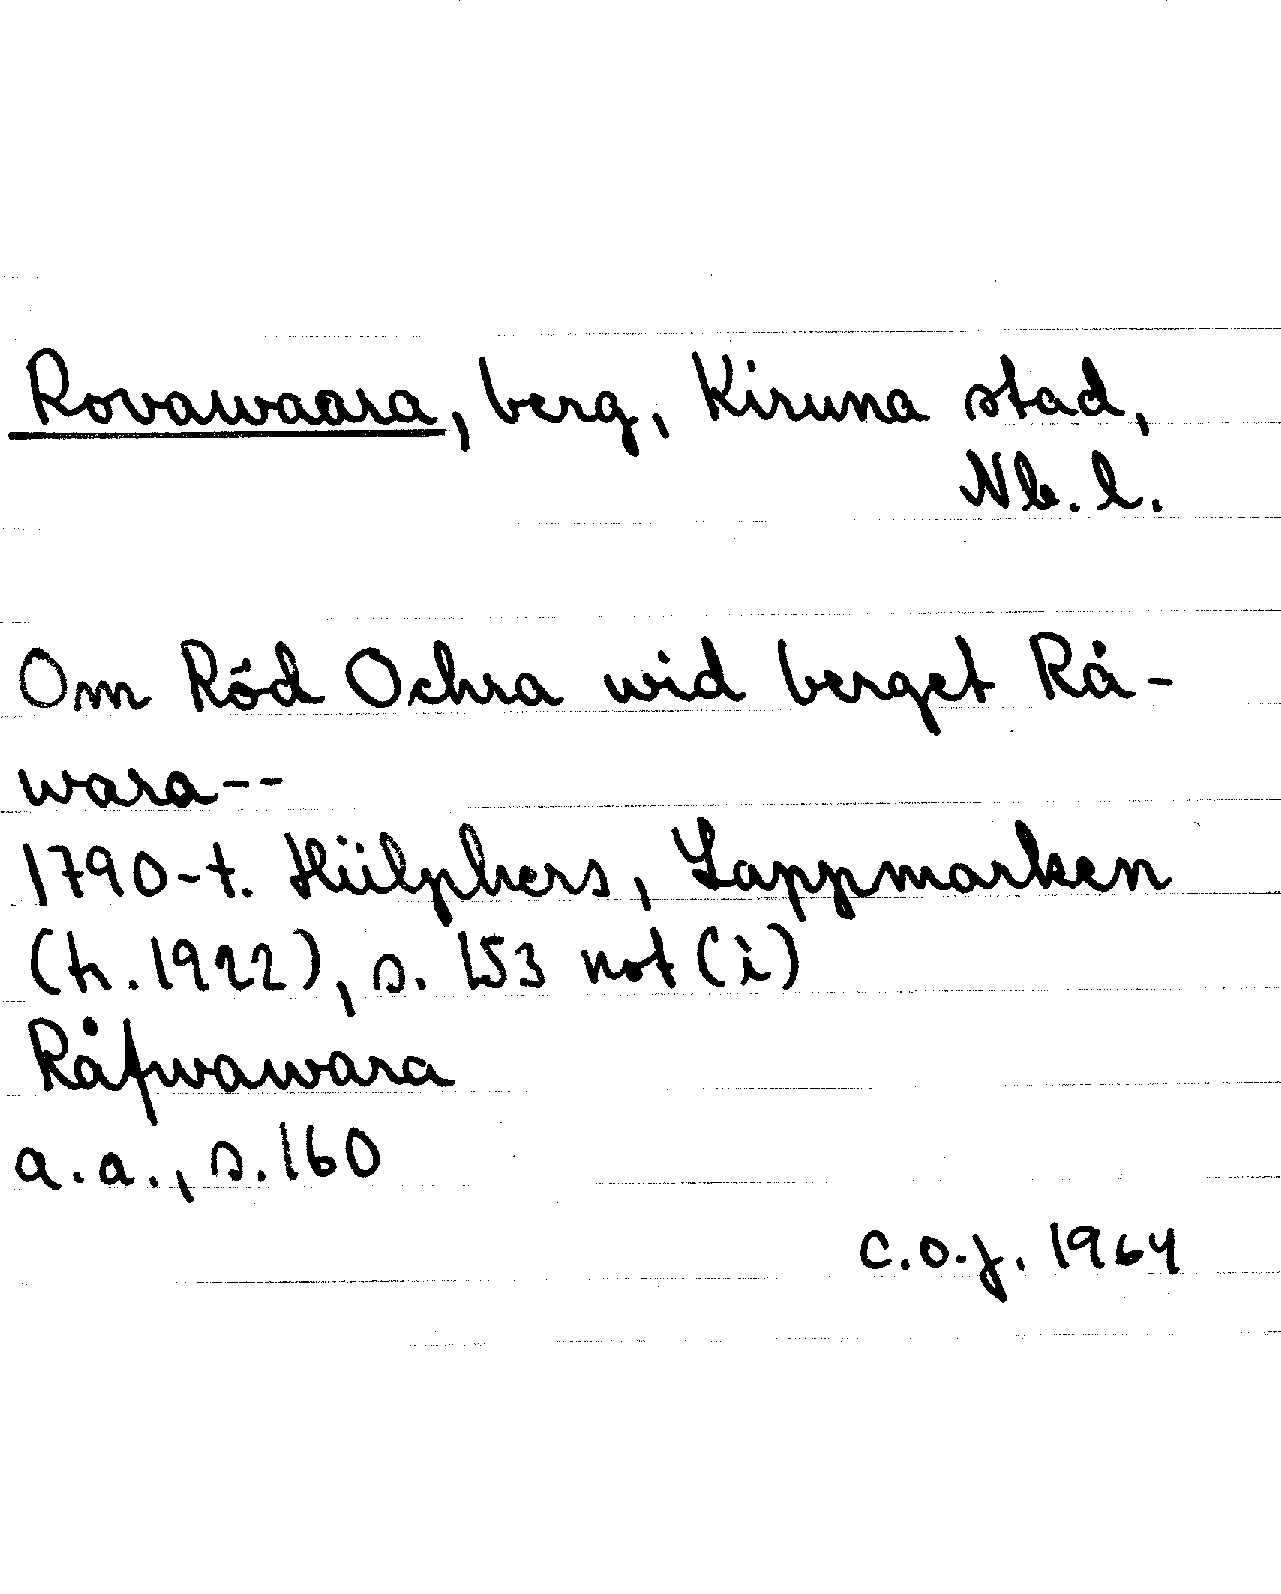 Rovawaara, berg, Kiruna stad,
Nb. l.
Om Röd Ochra wid berget Rå-
wara--
1790-t. Hülphers, Lappmarken
(tr. 1922), s. 153 not (i)
Råfwawara
a.a., s. 160
C.O.J. 1964